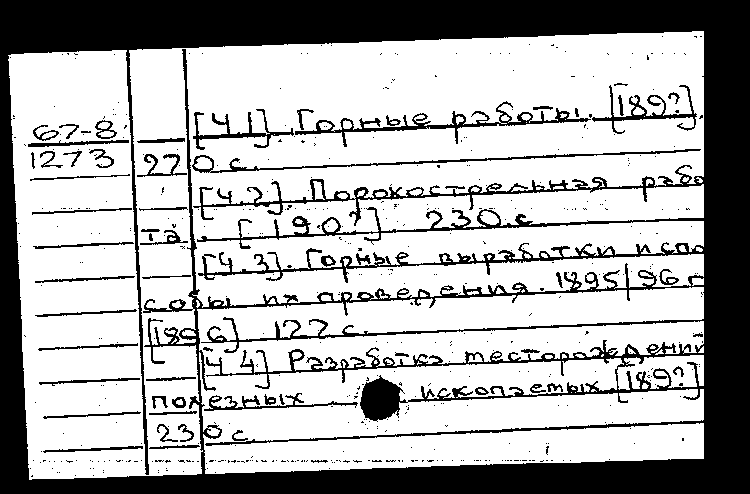 67-8 [Ч.1]. Горные работы. [189?].
1273 270 с.
[Ч.2]. Порокострельная рабо
та. [190?] 230.с
[Ч.3]. Горные выработки и спо
собы их проведения. 1895/96 г
[1896] 122 с.
[Ч 4] Разработка месторождений
полезных ископаемых. [189?]
230 с.